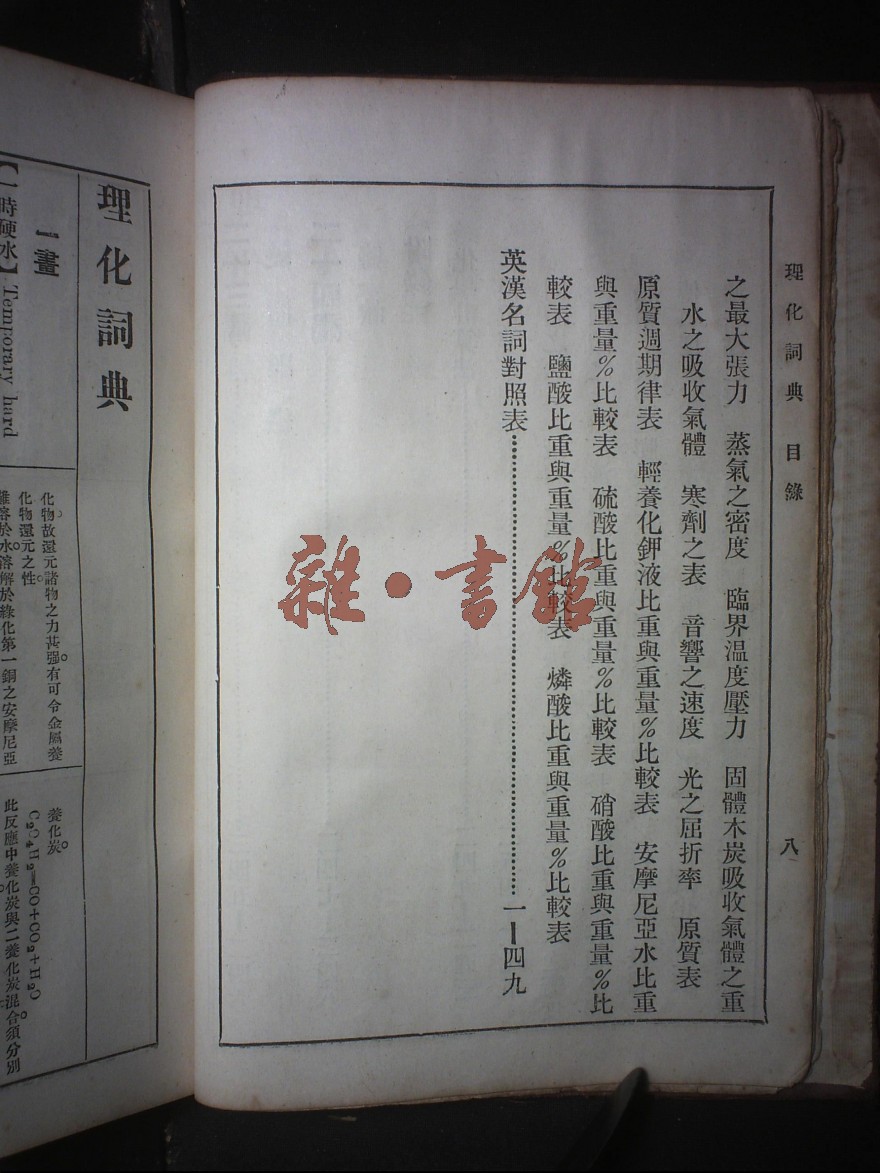 理化詞典 目錄
八
之最大張力 蒸氣之密度 臨界温度壓力 固體木炭吸收氣體之重
水之吸收氣體 寒劑之表 音響之速度 光之屈折率 原質表
原質週期律表 輕養化鉀液比重與重量%比較表 安摩尼亞水比重
與重量%比較表 硫酸比重與重量%比較表 硝酸比重與重量%比
較表 鹽酸比重與重量%比較表 燐酸比重與重量%比較表
英漢名詞對照表……一—四九
雜·書館
理化詞典
一畫
【一時硬水】Temporary hard
化物故還元諸物之力甚强有可令金屬養
化物還元之性
難溶於水溶解於綠化第一銅之安摩尼亞
養化炭
C₂O₄H₂=CO+CO₂+H₂O
此反應中養化炭與二養化炭混合須分別